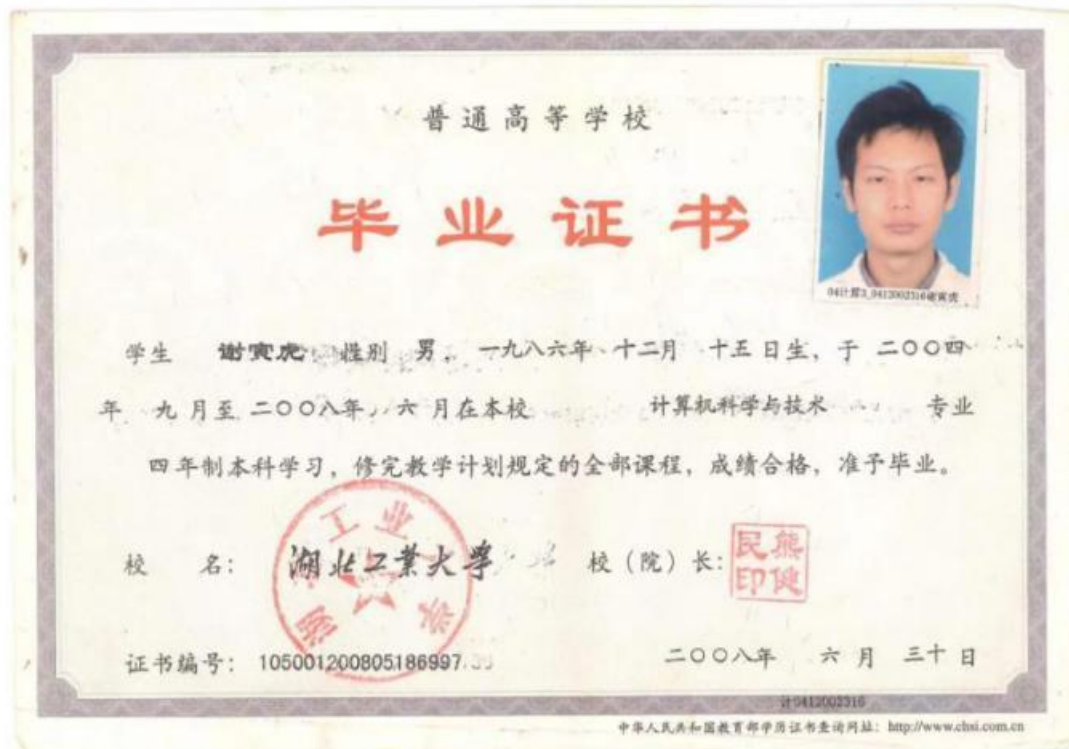 普通高等学校
毕业证书
04计算3_0412002316谢寅虎
学生 谢寅虎 性别 男, 一九八六年 十二月 十五日生, 于 二〇〇四
年 九月至二〇〇八年 六月在本校 计算机科学与技术 专业
四年制本科学习, 修完教学计划规定的全部课程, 成绩合格, 准予毕业。
校 名: 湖北工業大學 校(院)长: 熊健民印
湖 工业 学
证书编号: 105001200805186997 二〇〇八年 六月 三十日
计0412002316
中华人民共和国教育部学历证书查询网址: http://www.chsi.com.cn